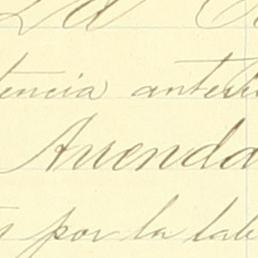 La
tencia anteri
Arrenda
por la lab